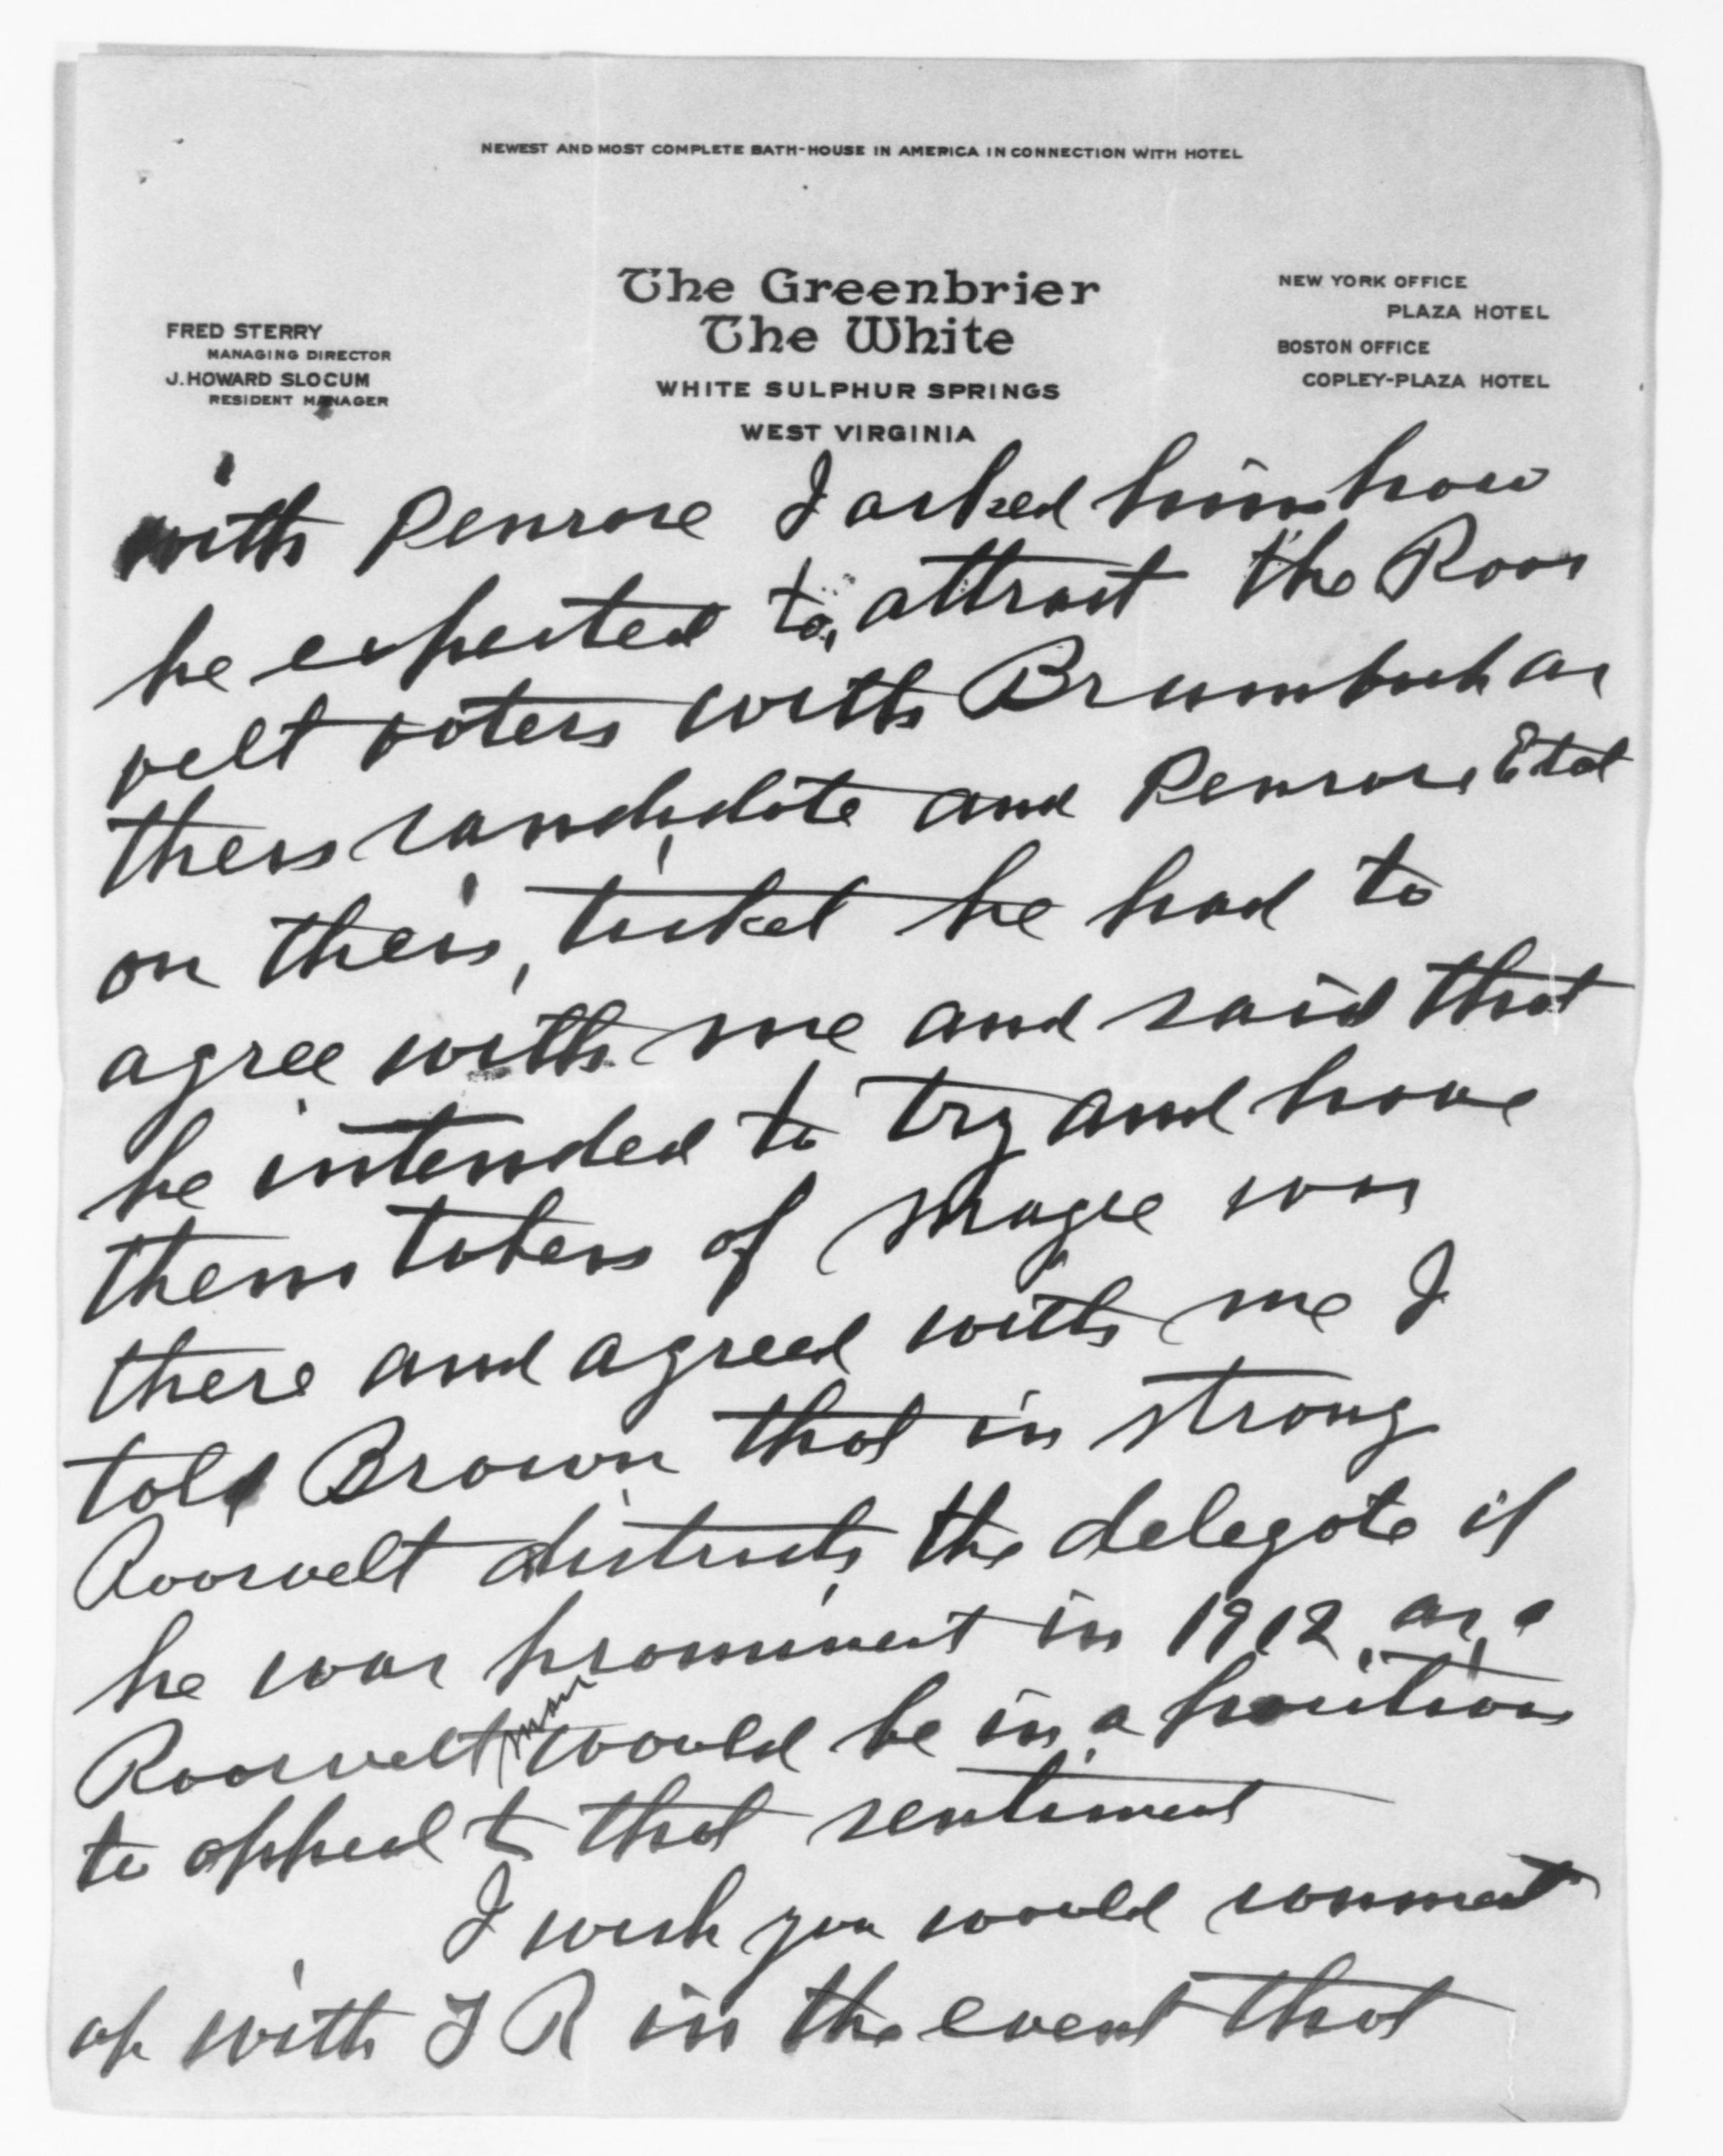 NEWEST AND MOST COMPLETE BATH-HOUSE IN AMERICA IN CONNECTION WITH HOTEL
The Greenbrier
The White
WHITE SULPHUR SPRINGS
WEST VIRGINIA
FRED STERRY
MANAGING DIRECTOR
J. HOWARD SLOCUM
RESIDENT MANAGER
NEW YORK OFFICE
PLAZA HOTEL
BOSTON OFFICE
COPLEY-PLAZA HOTEL
with Penrose I asked him how
he expected to attract the Roos
velt voters with Brumbuh as
their candidate and Penrose Etal
on their ticket he had to
agree with me and said that
he intended to try and have
them taken of Magee was
there and agreed with me I
told Brown that in strong
Roosvelt districts the delegate if
he was prominent in 1912 as a
Roosvelt man would be in a position
to appeal to that sentiment
I wish you would
up with T R in the event that